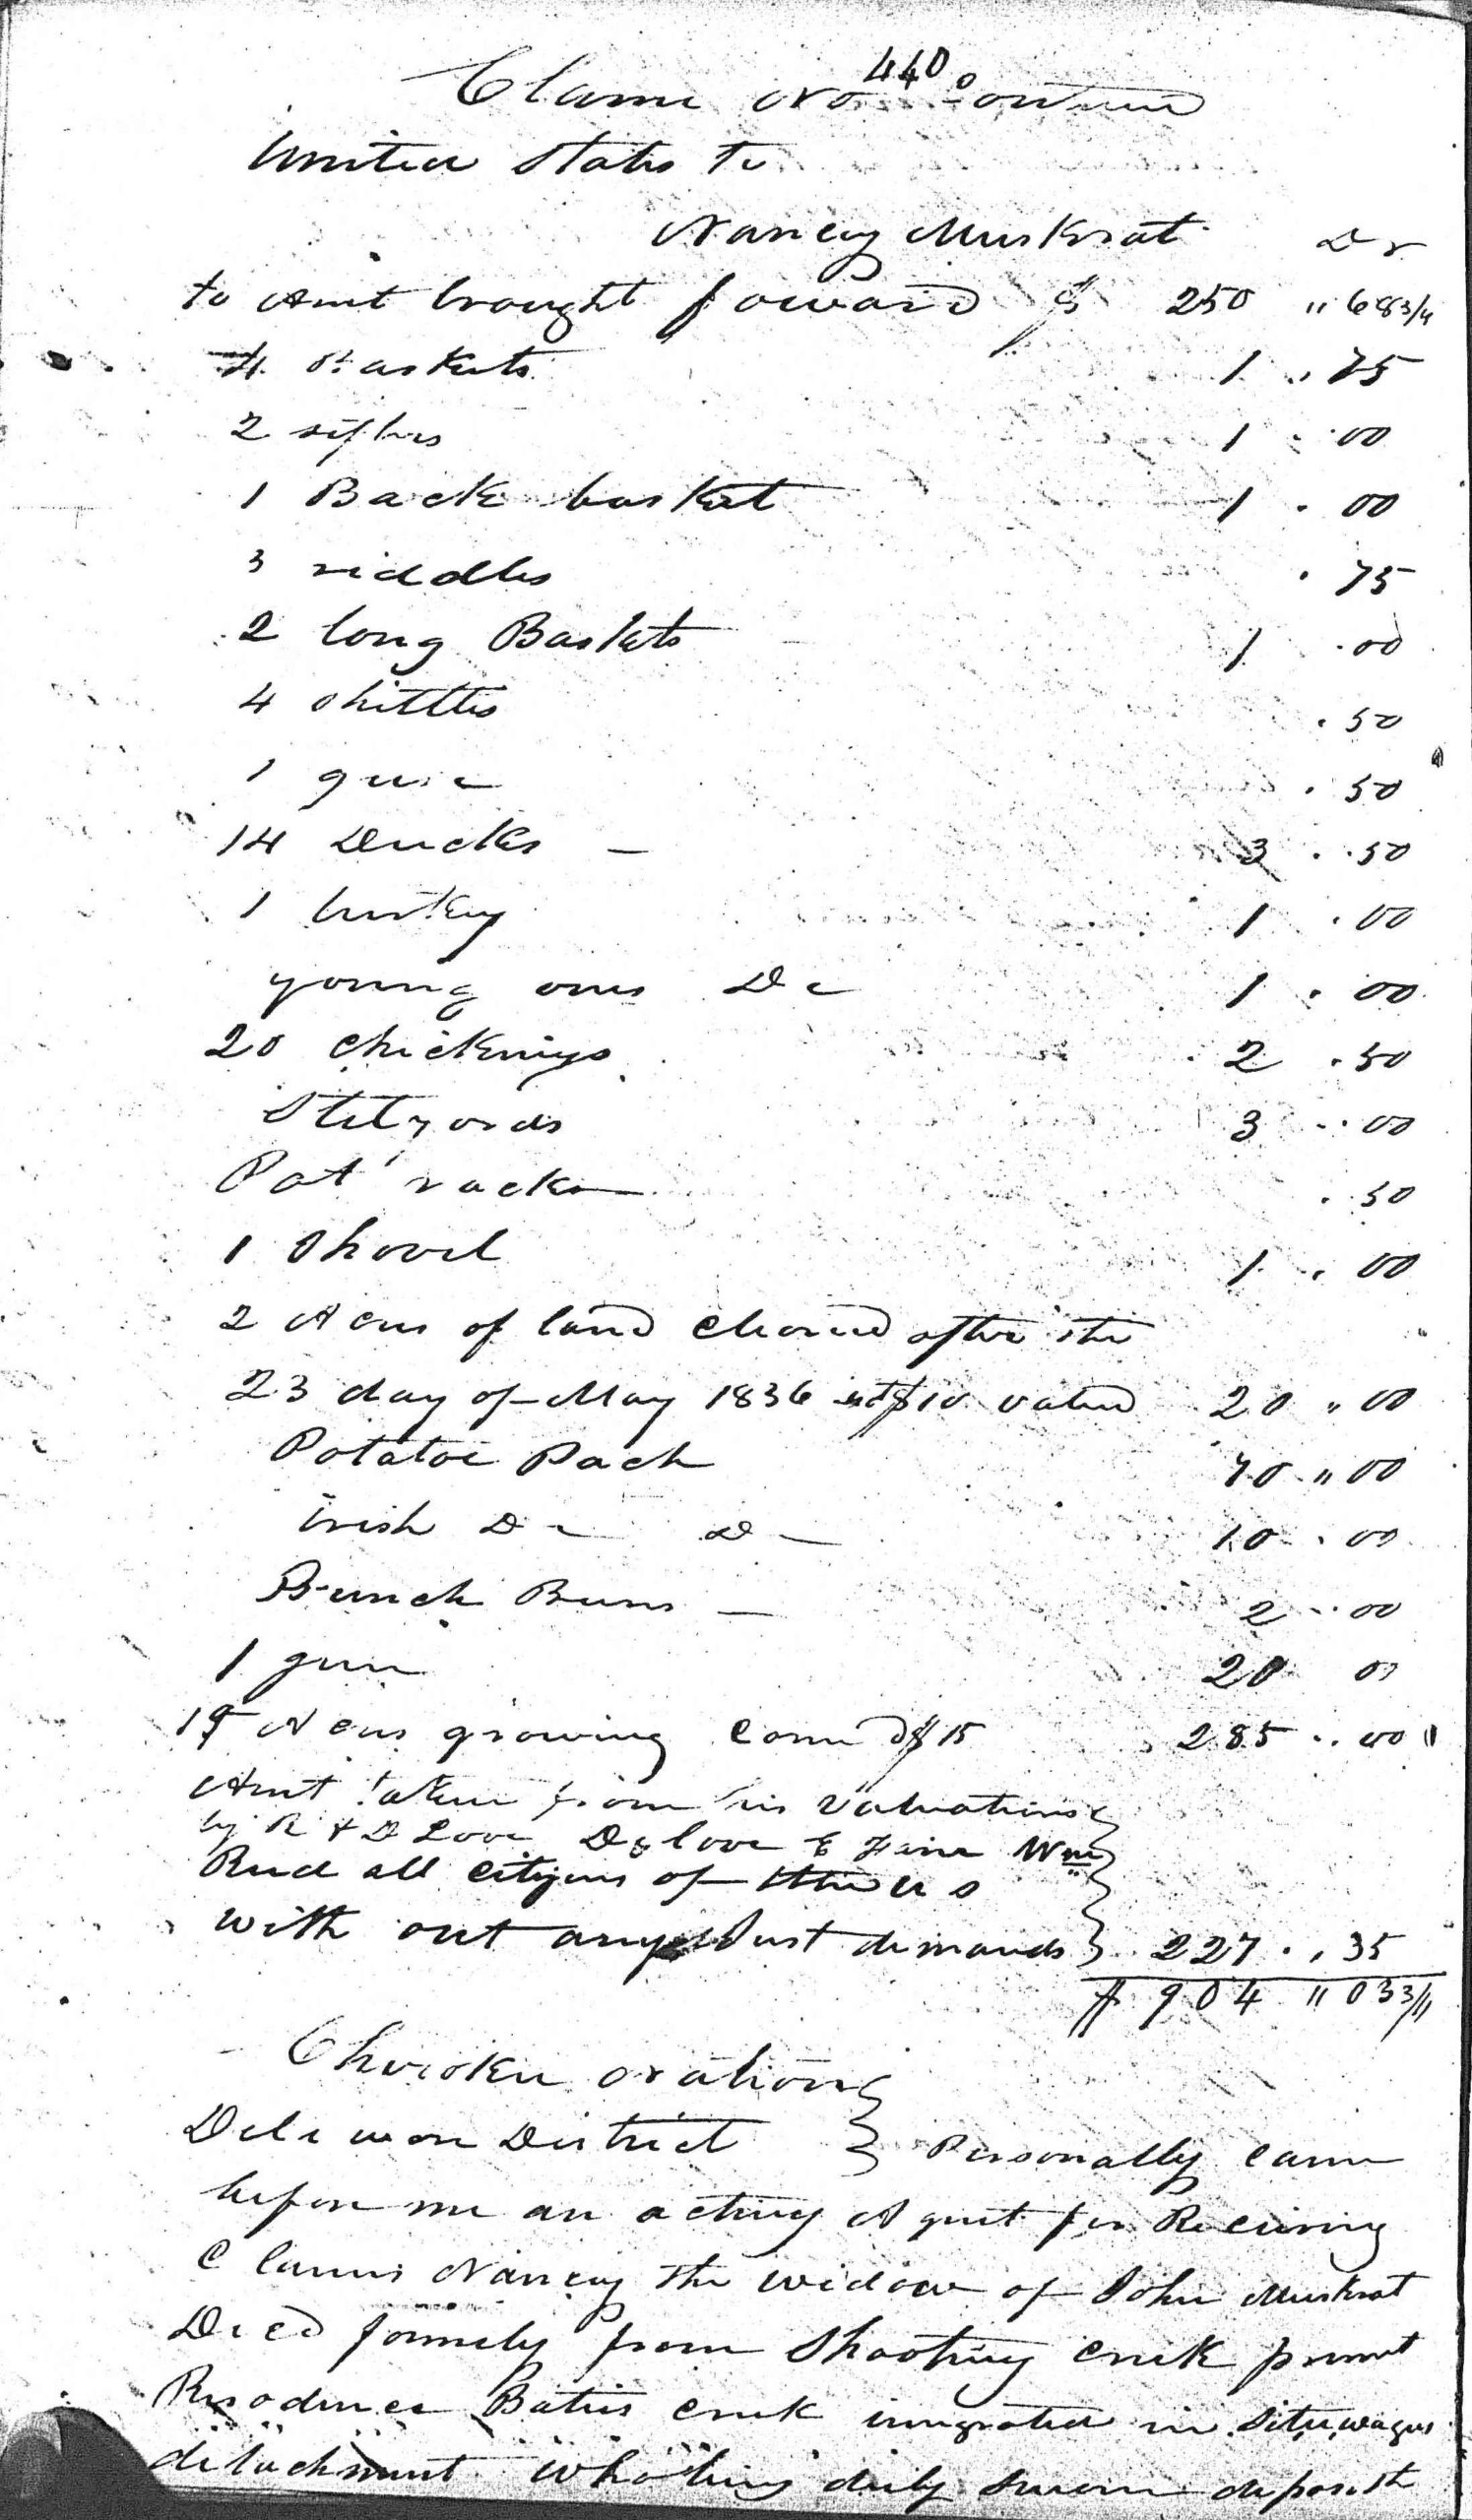 Claim No 440 Continued
United States To
Nancy Muskrat Dr
to Amt brought foward $ 250 " 68 3/4
4 Baskets 1 . 75
2 sifters 1 . 00
1 Back basket 1 . 00
3 riddles . 75
2 long Baskets 1 . 00
4 Skittles . 50
1 . 50
14 Ducks — 3 . 50
1 turkey 1 . 00
young ones Do 1 . 00
20 chickings 2 . 50
Stilyards 3 . 00
Pot rack . 50
1 Shovel 1 . 00
2 Acres of land cleared after the
23 day of May 1836 at $10 valued 20 " 00
Potatoe Pach 70 " 00
Irish Do Do 10 . 00
Bunch Beens — 2 . 00
1 gun 20 00
19 Acres growing corn @ $15 285 . 00
Amt taken from his valuations
by R & D Love D & love & Fain Wm
Reed all citizens of the U S
with out any Just demands 227 . 35
$ 904 " 03 3/4
Cherokee Nation
Delewore District } Personally came
before me an acting Agent for Receiving
Claims Nancy the widow of John Muskrat
Deed formely from Shooting creek present
Resodence Baties creek imigrated in Situwagus
detachment who being duly sworn deposeth